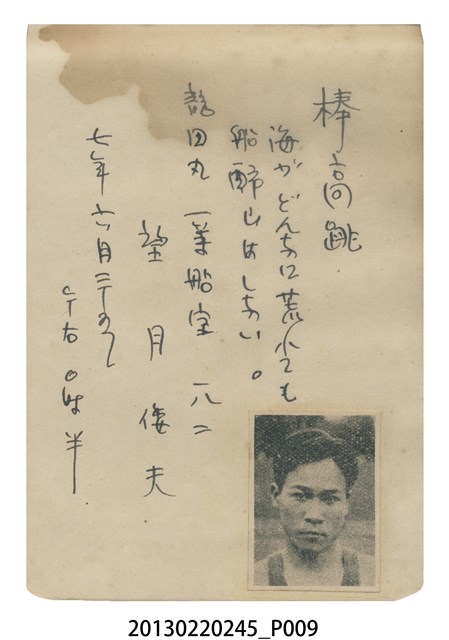 棒高跳
海がどんなに荒れても
船酔はしない。
龍田丸 一等船室 一八二
望月倭夫
七年六月三十
午后 時半
20130220245_P009